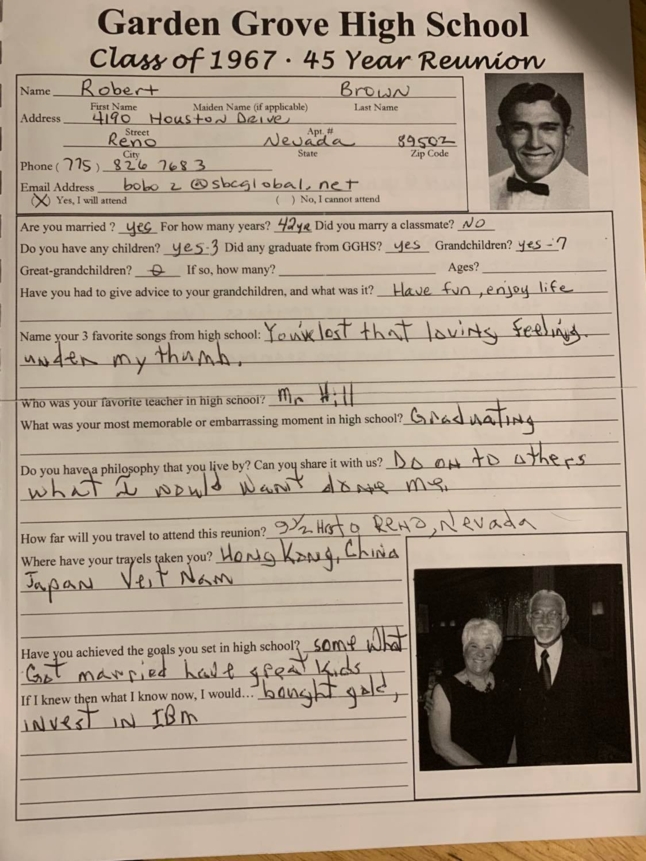 Garden Grove High School
Class of 1967 · 45 Year Reunion
Name Robert Brown
First Name Maiden Name (if applicable) Last Name
Address 4190 Houston Drive
Street Apt. #
Reno Nevada 89502
City State Zip Code
Phone (775) 826 7683
Email Address bobo 2 @sbcglobal.net
(X) Yes, I will attend ( ) No, I cannot attend
Are you married ? yes For how many years? 42yr Did you marry a classmate? NO
Do you have any children? yes-3 Did any graduate from GGHS? yes Grandchildren? yes-7
Great-grandchildren? 0 If so, how many? Ages?
Have you had to give advice to your grandchildren, and what was it? Have fun, enjoy life
Name your 3 favorite songs from high school: You've lost that loving feeling.
under my thumb.
Who was your favorite teacher in high school? Mr Hill
What was your most memorable or embarrassing moment in high school? Graduating
Do you have a philosophy that you live by? Can you share it with us? Do on to others
what I would want done me.
How far will you travel to attend this reunion? 9 1/2 Hrs to RENO, Nevada
Where have your travels taken you? Hong Kong, China
Japan Veit Nam
Have you achieved the goals you set in high school? some what
Got married have great kids
If I knew then what I know now, I would... bought gold,
invest in IBM